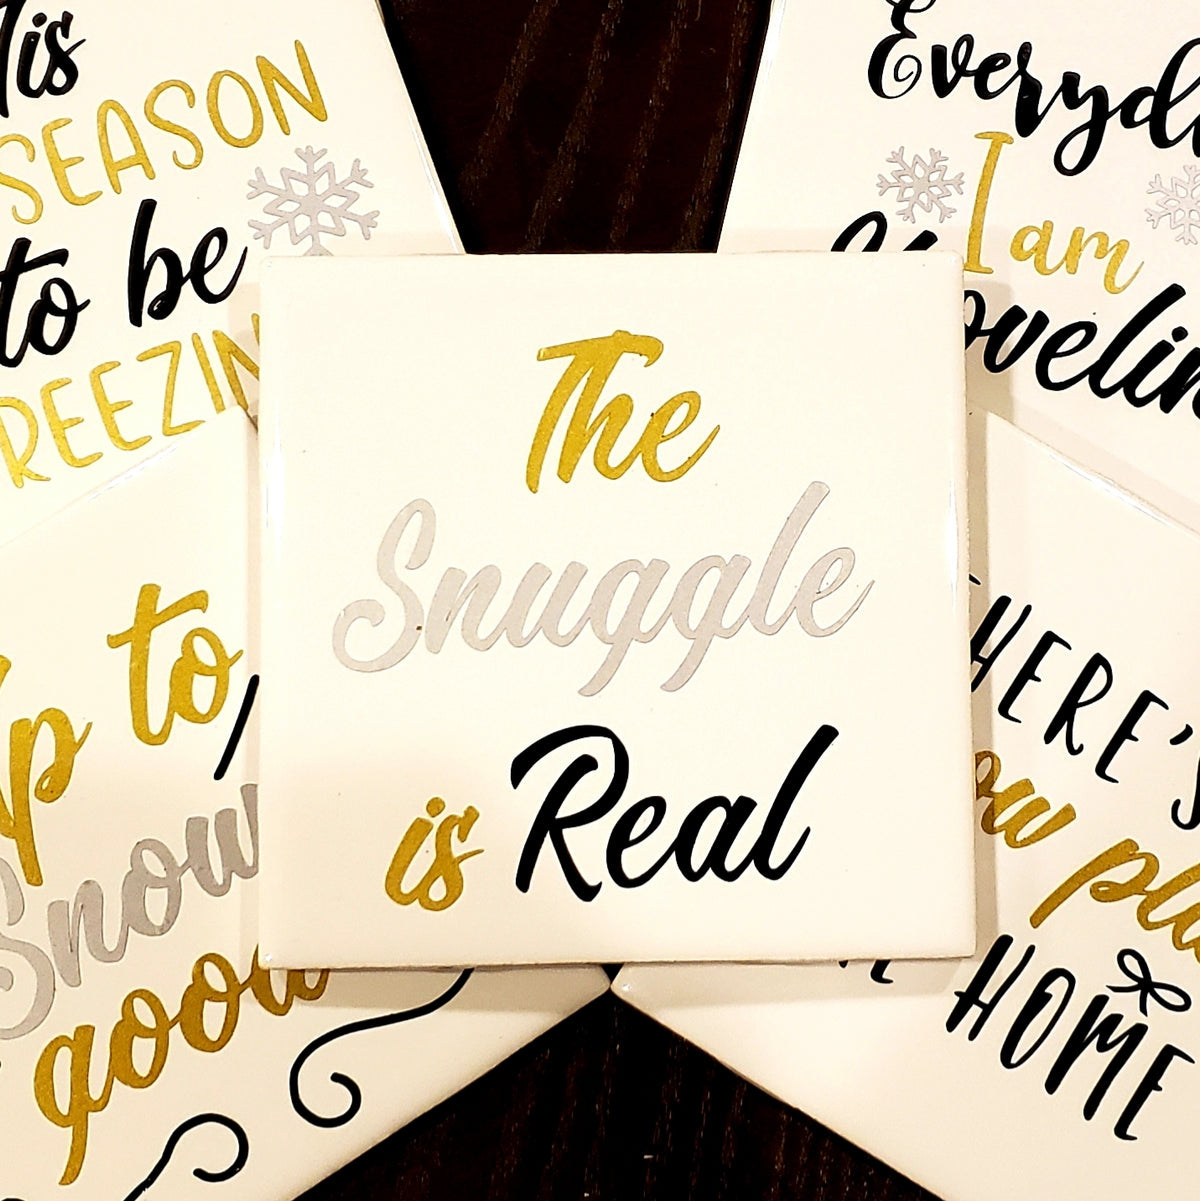 Tis
SEASON
to be
REEZIN
Everyd
I am
ovelin
The
Snuggle
is Real
p to
Snow
good
HERE'S
ow pla
HOME